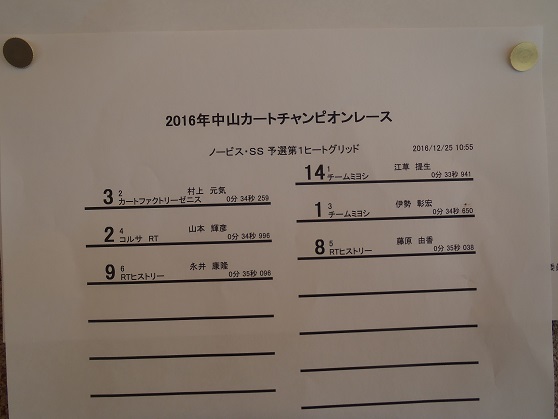 2016年中山カートチャンピオンレース
ノービス・SS 予選第1ヒートグリッド
2016/12/25 10:55
14 1 江草 提生
チームミヨシ 0分 33秒 941
3 2 村上 元気
カートファクトリーゼニス 0分 34秒 259
1 3 伊勢 彰宏
チームミヨシ 0分 34秒 650
2 4 山本 輝彦
コルサ RT 0分 34秒 996
8 5 藤原 由香
RTヒストリー 0分 35秒 038
9 6 永井 康隆
RTヒストリー 0分 35秒 096